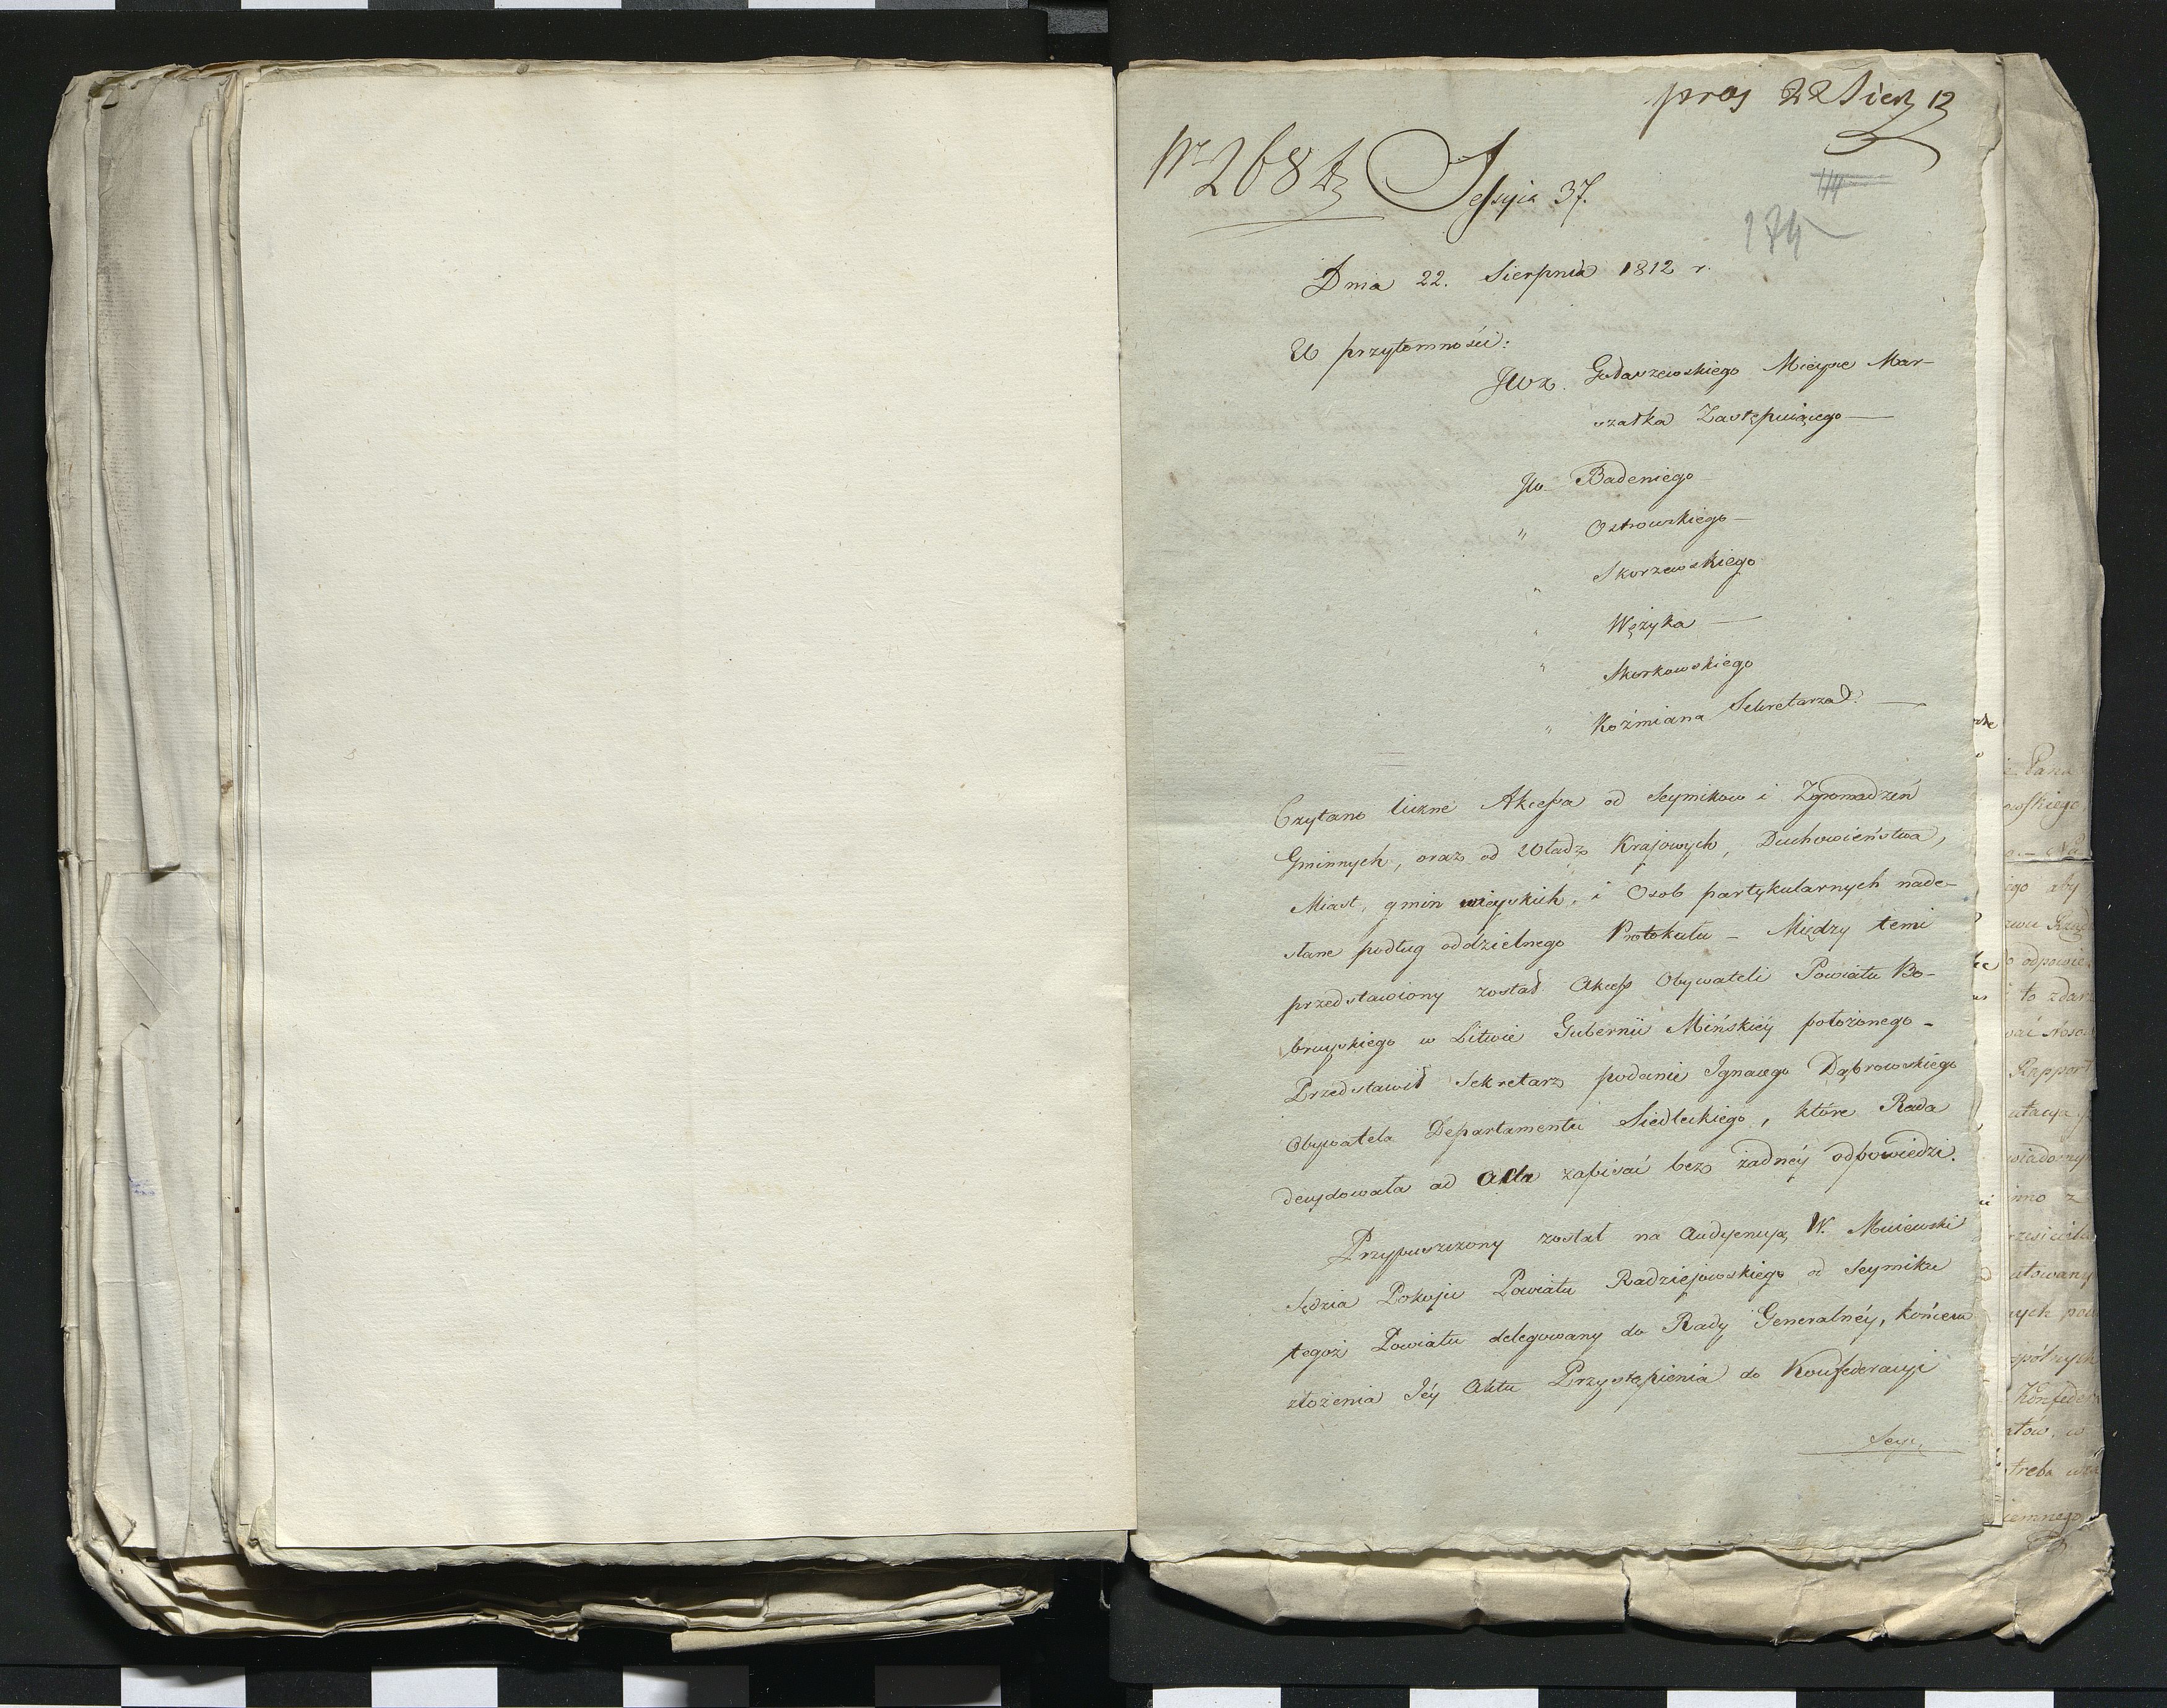 pras 22 Sierp 12
Nr 268
174
Sessyia 37.
Dnia 22. Sierpnia 1812 r.
W przytomności:
JWX. Gołaszewskiego Mieysce Mar-
szałka Zastępuiącego —
JW. Badeniego
" Ostrowskiego —
" Skorzewskiego
" Wężyka —
" Skorkowskiego
" Koźmiana Sekretarza. —
Czytano liczne Akcessa od Seymikow i Zgromadzeń
Gminnych, oraz od Władz Krajowych, Duchowieństwa,
Miast, gmin wieyskich, i Osob partykularnych nade-
słane podług oddzielnego Protokułu — Między temi
przedstawiony został Akcess Obywateli Powiatu Bo-
bruyskiego w Litwie Gubernii Mińskiéy położonego —
Przedstawił Sekretarz podanie Ignacego Dąbrowskiego
Obywatela Departamentu Siedleckiego, które Rada
decydowała ad Acta zapisać bez żadnéy odpowiedzi.
Przypuszczony został na Audyencyą W.
Sędzia Pokoju Powiatu Radziejowskiego od Seymiku
tegoż Powiatu delegowany do Rady Generalnéy, końcem
złożenia Jéy Aktu Przystąpienia do Konfederacyi